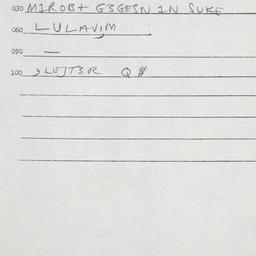 030 M1ROB+ G3GESN 1N SUKE
060 LULAVIM
090 —
100 LEJTSR Q $